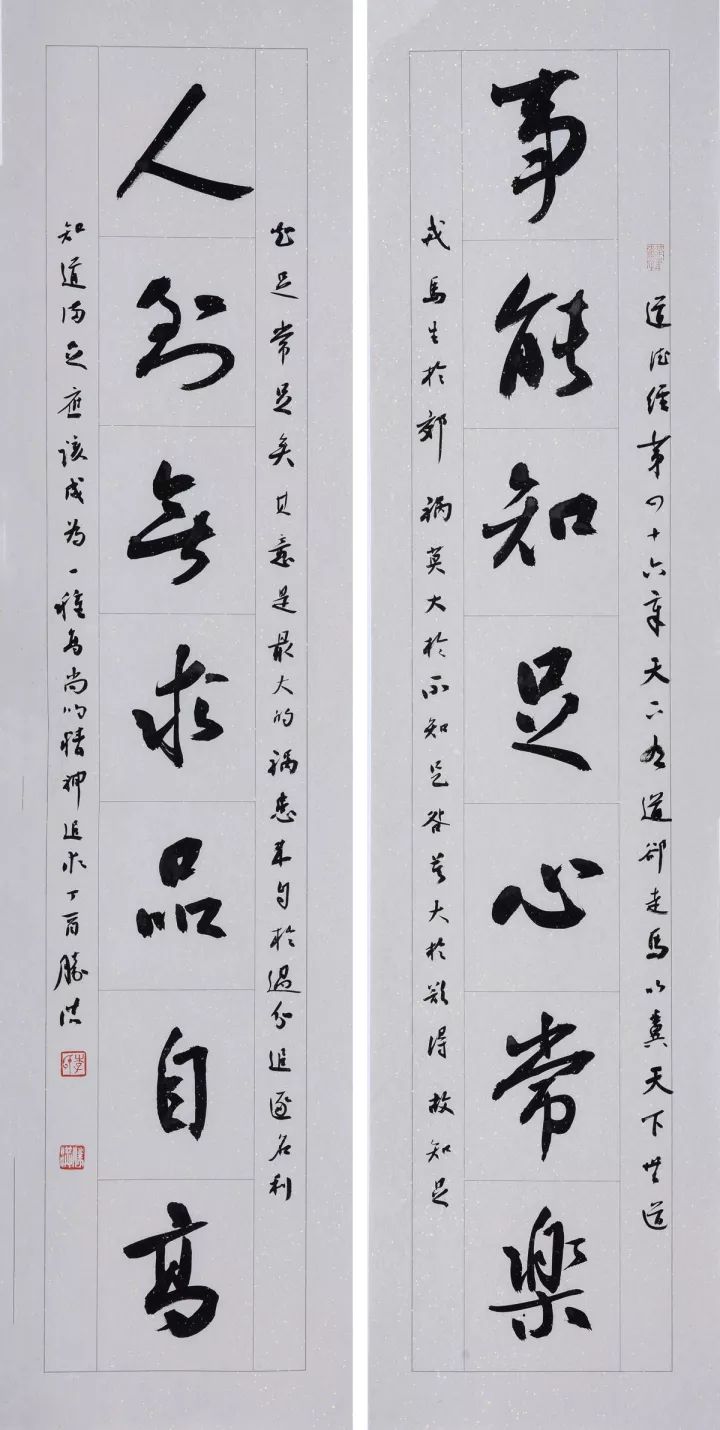 道德經第四十六章天下有道卻走馬以糞天下無道
事能知足心常樂
戎馬生於郊禍莫大於不知足咎莫大於欲得故知足
之足常足矣其意是最大的禍患來自於過分追逐名利
人到無求品自高
知道滿足應該成為一種高尚的精神追求丁酉騰洪